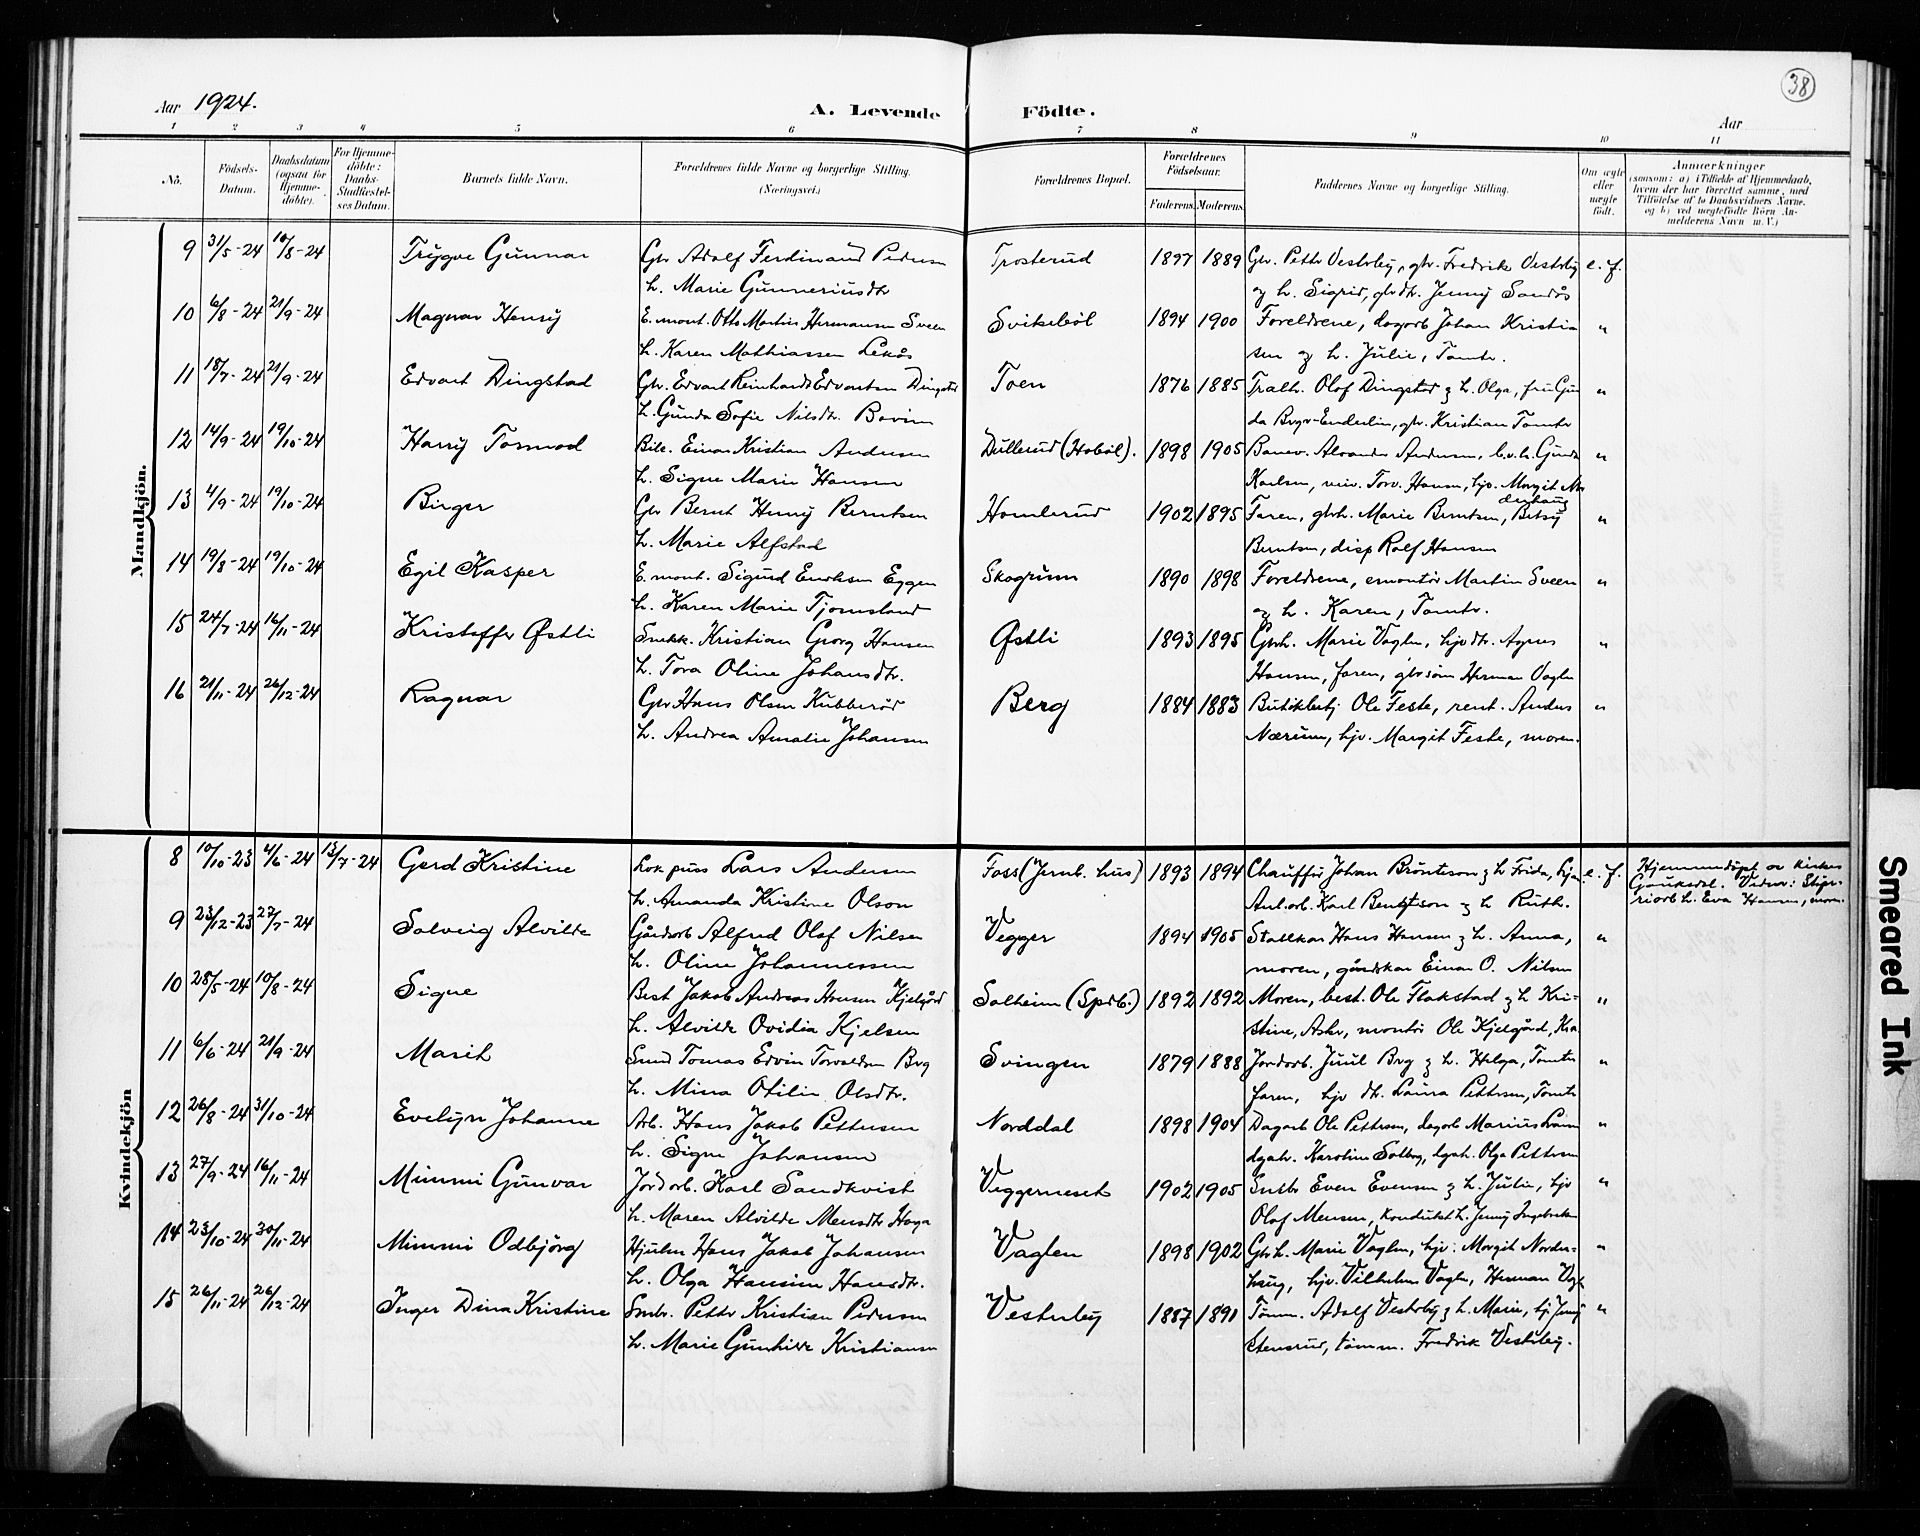 38
Aar 1924.
A. Levende Födte.
Aar
1 2 3 4 5 6 7 8 9 10 11
No.
Födsels-Datum.
Daabsdatum (ogsaa for Hjemme-döbte).
For Hjemme-döbte: Daabs-Stadfæstel-ses Datum.
Barnets fulde Navn.
Forældrenes fulde Navne og borgerlige Stilling. (Næringsvei.)
Forældrenes Bopæl.
Forældrenes Födselsaar.
Faderens. Moderens.
Faddernes Navne og borgerlige Stilling.
Om ægte eller uægte födt.
Anmærkninger (saasom: a) i Tilfælde af Hjemmedaab, hvem der har forrettet samme, med Tilföielse af to Daabsvidners Navne. og b) ved uægtefödte Börn An-melderens Navn m. V.)
Mandkjön.
9 31/5-24 10/8-24 Trygve Gunnar Gbr Adolf Ferdinand Pedersen Trosterud 1897 1889 Gbr. Petter Vesterby, gbr. Fredrik Vesterby e. f.
h. Marie Gunneriusdtr og h. Sigrid, gbrdtr. Jenny Sandås
10 6/8-24 21/9-24 Magnar Henry E. mont. Otto Martin Hermansen Sveen Svikebøl 1894 1900 Foreldrene, dagarb Johan Kristia "
h. Karen Mathiassen Lekås sen og h. Julie, Tomtr.
11 18/7-24 21/9-24 Edvart Dingstad Gbr. Edvart Reinhardt Edvartsen Dingstad Toen 1876 1885 Tralh. Olaf Dingstad & h. Olga, fru Gun "
h. Gunda Sofie Nilsdtr. Bovim da Berger-Enderlin, gbr. Kristian Tomter
12 14/9-24 19/10-24 Harry Tormod Bile. Einar Kristian Andersen Dullerud (Hobøl). 1898 1905 Banev. Alexander Andersen, b.v.h. Gunda "
h. Signe Marie Hansen Karlsen, Torv. Hansen, hjv. Margit No
13 4/9-24 19/10-24 Birger Gbr Bernt Henry Berntsen Homlerud 1902 1895 Faren, gbrh. Marie Berntsen, Betsy "
derhaug
h. Marie Alfstad Berntsen, disp Rolf Hansen
14 19/8-24 19/10-24 Egil Kasper E. mont. Sigurd Enoksen Eggen Skogrum 1890 1898 Foreldrene, emontør Martin Sveen "
h. Karen Marie Tjomsland og h. Karen, Tomtr.
15 24/7-24 16/11-24 Kristoffer Østli Snekk. Kristian Georg Hansen Østli 1893 1895 Gbrh. Marie Vaglen, hjv dtr. Agnes "
h. Tora Oline Johansdtr. Hansen, faren, gbrsøn Herman Vaglen
16 21/11-24 26/12-24 Ragnar Gbr Hans Olsen Kubberød Berg 1884 1883 Butikkbetj Ole Feste, rent. Anders "
h. Andrea Amalie Johansen Nærum, hjv. Margit Feste, moren.
Kvindekjön
8 10/10-23 4/6-24 13/7-24 Gerd Kristine Lok puss Lars Andersen Foss (Jernb. hus) 1893 1894 Chauffør Johan Brönteson & h Frida, e. f. Hjemmedøpt av kirkes
Gauksdal. Vidner: Stiger-
h. Amanda Kristine Olson Anl.arb. Karl Bengtson & h Ruth. riarb h. Eva Hansen, moren.
9 23/12-23 27/7-24 Solveig Alvilde Gårdarb Alfred Olaf Nilsen Vegger 1894 1905 Stallkar Hans Hansen & h. Anna, "
h. Oline Johannessen moren, gårdskar Einar O. Nilsen
10 28/5-24 10/8-24 Signe Best Jakob Andreas Hansen Kjelgård Solheim (Spdb.) 1892 1892 Moren, best. Ole Flakstad & h Kri- "
h. Alvilde Ovidia Kjelsen stine, Asker, montør Ole Kjelgård, Kra
11 6/6-24 21/9-24 Marit Smed Tomas Edvin Torvaldsen Berg Svingen 1879 1888 Jordarb. Juul Berg & h. Helga, Tomter "
h. Mina Otilie Olsdtr. faren, hjv dtr. Laura Pettersen, Tomter
12 26/8-24 31/10-24 Evelyn Johanne Arb. Hans Jakob Pettersen Norddal 1898 1904 Dagarb Ole Pettersen, dagarb Marius "
h. Signe Johansen dgah. Karoline Solberg, dgah. Olga Pettersen
13 27/9-24 16/11-24 Mimmi Gunvar Jordarb. Karl Sandkvist Veggerneset 1902 1905 Smbr Even Evensen & h. Julie, hjv "
h. Maren Alvilde Mensdtr Haga Olaf Mensen, konduktørh. Jenny Ingebretsen
14 23/10-24 30/11-24 Mimmi Odbjörg Hjulm Hans Jakob Johansen Vaglen 1898 1902 Gbrh. Marie Vaglen, hjv: Margit Norder- "
h. Olga Hansine Hansdtr. haug, hjv. Vilhelm Vaglen, Herman Vagl
15 26/11-24 26/12-24 Inger Dina Kristine Smbr. Petter Kristian Pedersen Vesterby 1887 1891 Tömm. Adolf Vesterby & h. Marie, hj Jenny "
h. Marie Gunhilde Kristiansen Stensrud, tømm. Fredrik Vesterby.
Smeared Ink